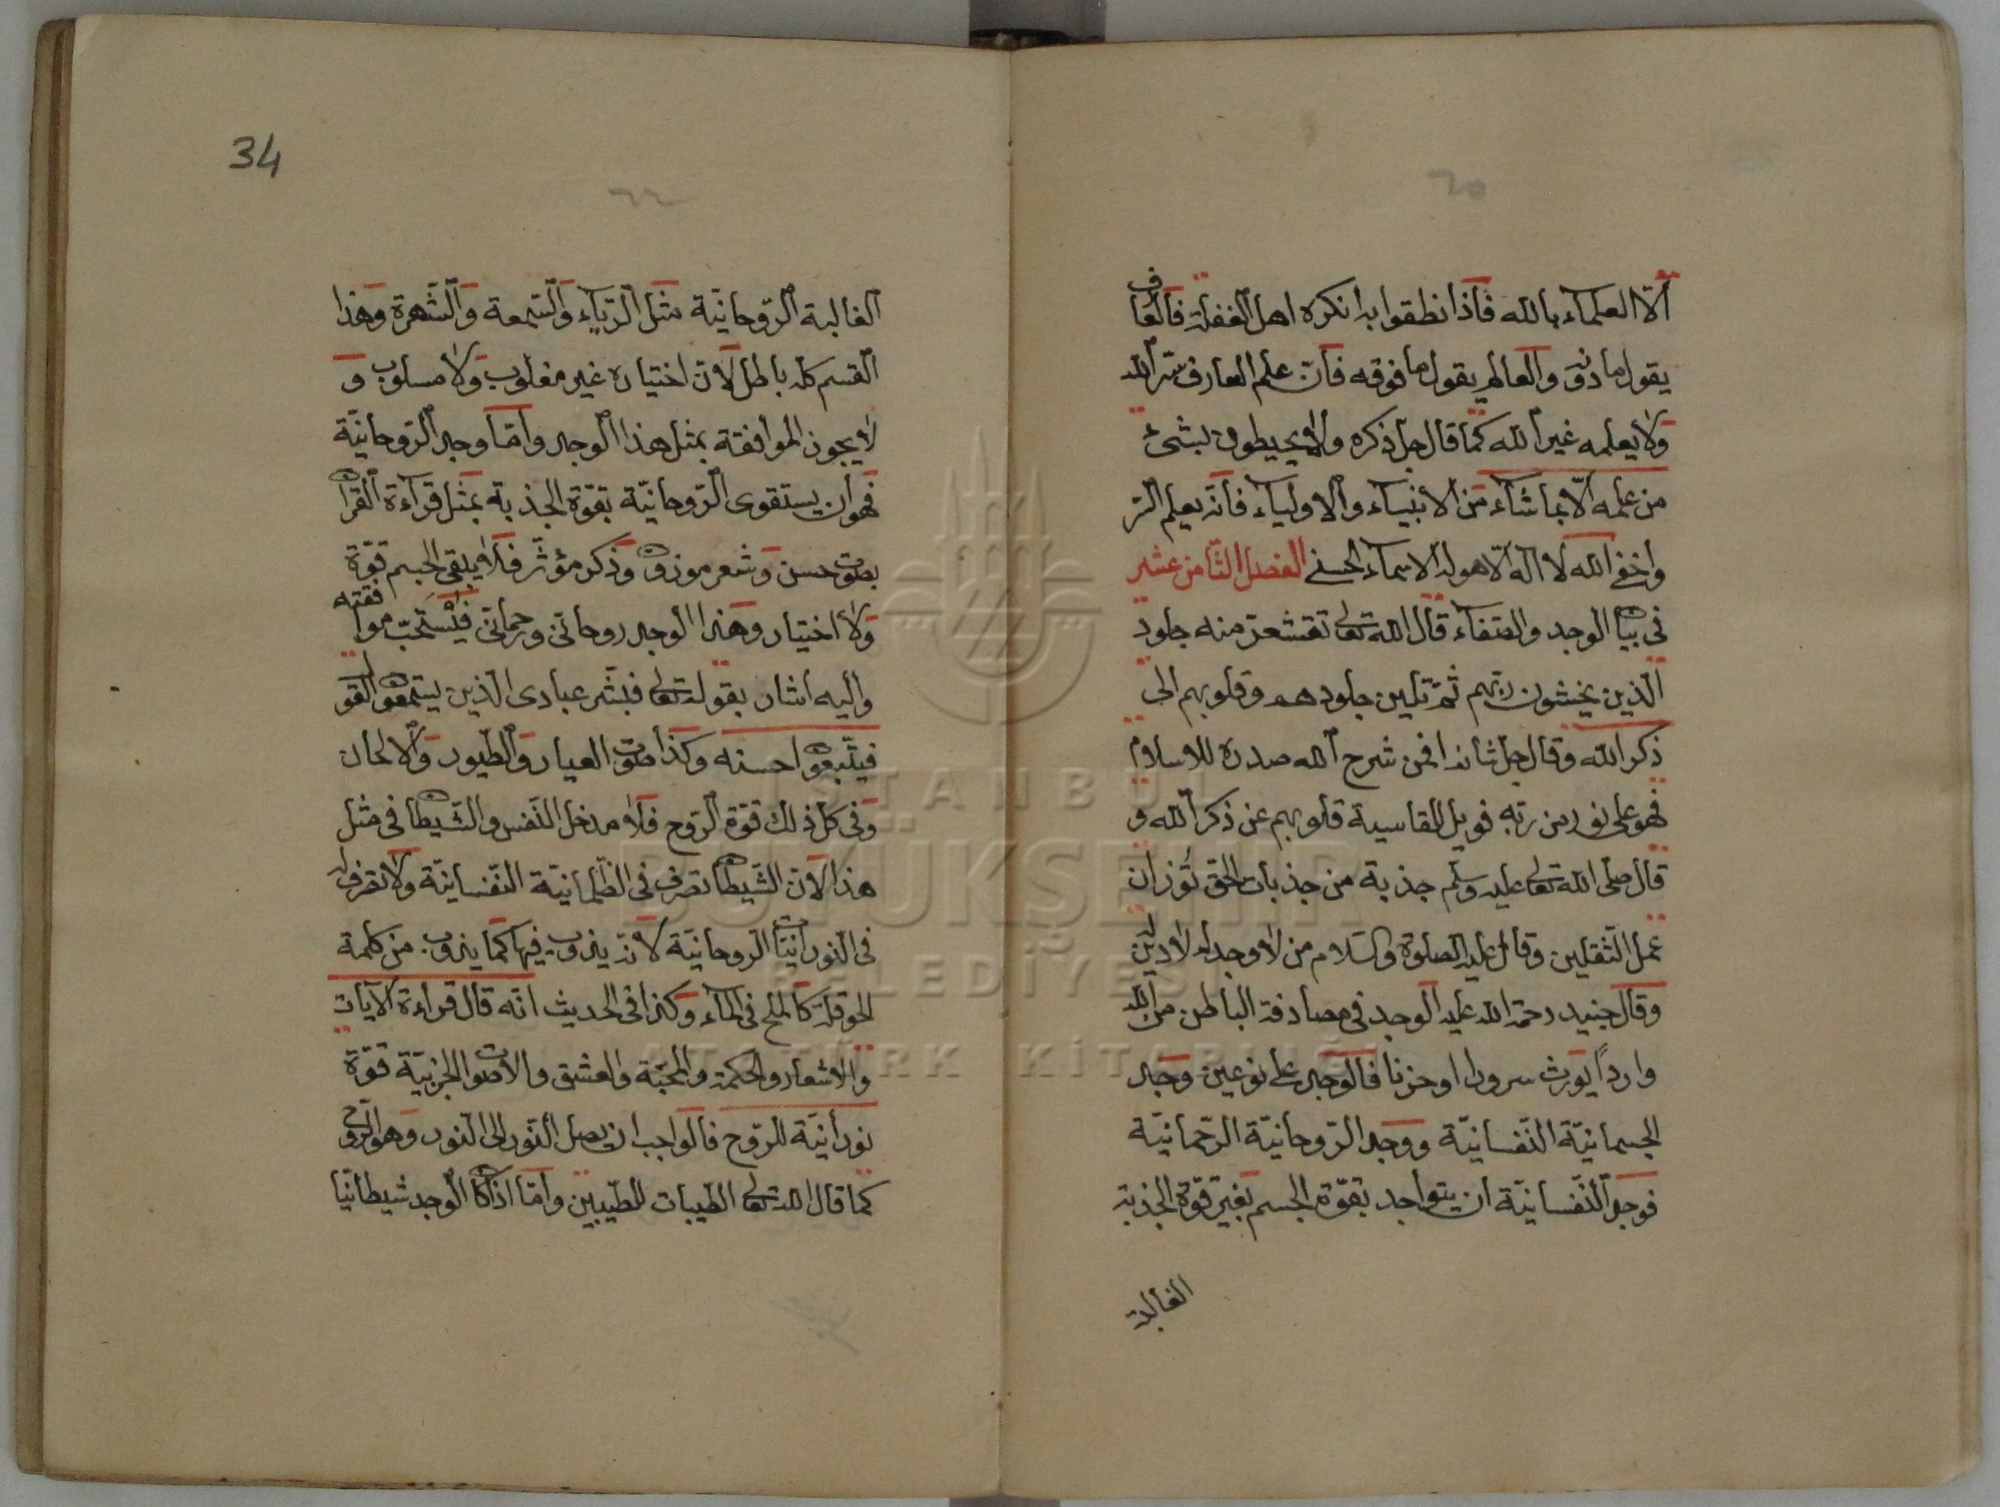 ٦٥
الا العلماء بالله فاذا نطقوا به انكره اهل الغفلة فالعارف
يقول ما دونه والعالم يقول ما فوقه فان علم العارف سر الله
ولا يعلمه غير الله كما قال جل ذكره ولا يحيطون بشئ
من علمه الا بما شاء من الانبياء والاولياء فانه يعلم السر
واخفى الله لا اله الا هو له الاسماء الحسنى الفصل الثامن عشر
فى بيان الوجد والصفاء قال الله تعالى تقشعر منه جلود
الذين يخشون ربهم ثم تلين جلودهم وقلوبهم الى
ذكر الله وقال جل شانه افمن شرح الله صدره للاسلام
فهو على نور من ربه فويل للقاسية قلوبهم عن ذكر الله و
قال صلى الله تعالى عليه وسلم جذبة من جذبات الحق توزان
عمل الثقلين وقال عليه الصلوة والسلام من لا وجد له لا دين له
وقال جنيد رحمة الله عليه الوجد فى مصادفة الباطن من الله
واردا يورث سرورا او حزنا فالوجد على نوعين وجد
الجسمانية النفسانية ووجد الروحانية الرحمانية
فوجد النفسانية ان يتواجد بقوة الجسم بغير قوة الجذبة
الغالبة
34
٦٦
الغالبة الروحانية مثل الرياء والسمعة والشهرة وهذا
القسم كله باطل لان اختياره غير مغلوب ولا مسلوب و
لا يجوز الموافقة بمثل هذا الوجد واما وجد الروحانية
فهو ان يستقوى الروحانية بقوة الجذبة بمثل قراءة القران
بصوت حسن وشعر موزون وذكر مؤثر فلا يبقى الجسم قوة
ولا اختيار وهذا الوجد روحانى ورحمانى فيستحب موافقته
واليه اشار بقوله تعالى فبشر عبادى الذين يستمعون القول
فيتبعون احسنه وكذا صوت العيار والطيور والالحان
وفى كل ذلك قوة الروح فلا مدخل النفس والشيطان فى مثل
هذا لان الشيطان تصرف فى الظلمانية النفسانية ولا تصرف له
فى النورانيات الروحانية لانه يذوب فيها كما يذوب من كلمة
الحوقلة كالملح فى الماء وكذا فى الحديث انه قال قراءة الآيات
والاشعار والحكمة والمحبة والعشق والاصوات الحزبية قوة
نورانية للروح فالواجب ان يصل النور الى النور وهو الروح
كما قال الله تعالى الطيبات للطيبين واما اذا كان الوجد شيطانيا
ISTANBUL
BÜYÜKŞEHİR
BELEDİYESİ
ATATÜRK KİTAPLIĞI